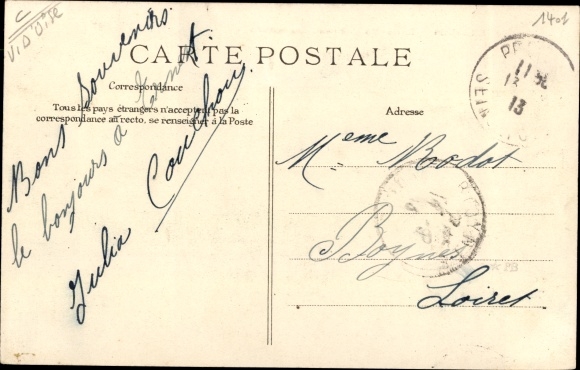 C
V. D'OISE
1401
CARTE POSTALE
Correspondance
Tous les pays étrangers n'acceptent pas la
correspondance au recto, se renseigner à la Poste
Bons Souvenirs
le bonjours a
Julia
Adresse
Meme Bodot
Boynes
Loiret
11
13
SEINE
BOYNES